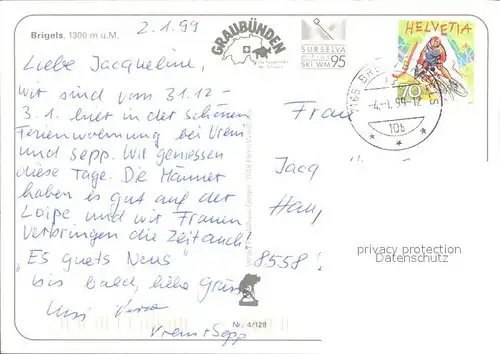 Brigels, 1300 m ü.M.
2.1.99
GRAUBÜNDEN
SURSELVA
SKI WM 95
HELVETIA
70
7165 BR
-4.-1.99-12
10b
Liebe Jacqueline,
wir sind vom 31.12 –
3.1. hier in der schönen
Ferienwohnung bei Vreni
und Sepp. Wir geniessen
diese Tage. Die Männer
haben es gut auf der
Loipe und wir Frauen
verbringen die Zeit auch!
"Es guets Neus"
bis bald, liebe Grüsse
Vreni + Sepp
Frau
Jacq
Hau
8558
privacy protection
Datenschutz
Nr.: 4/128